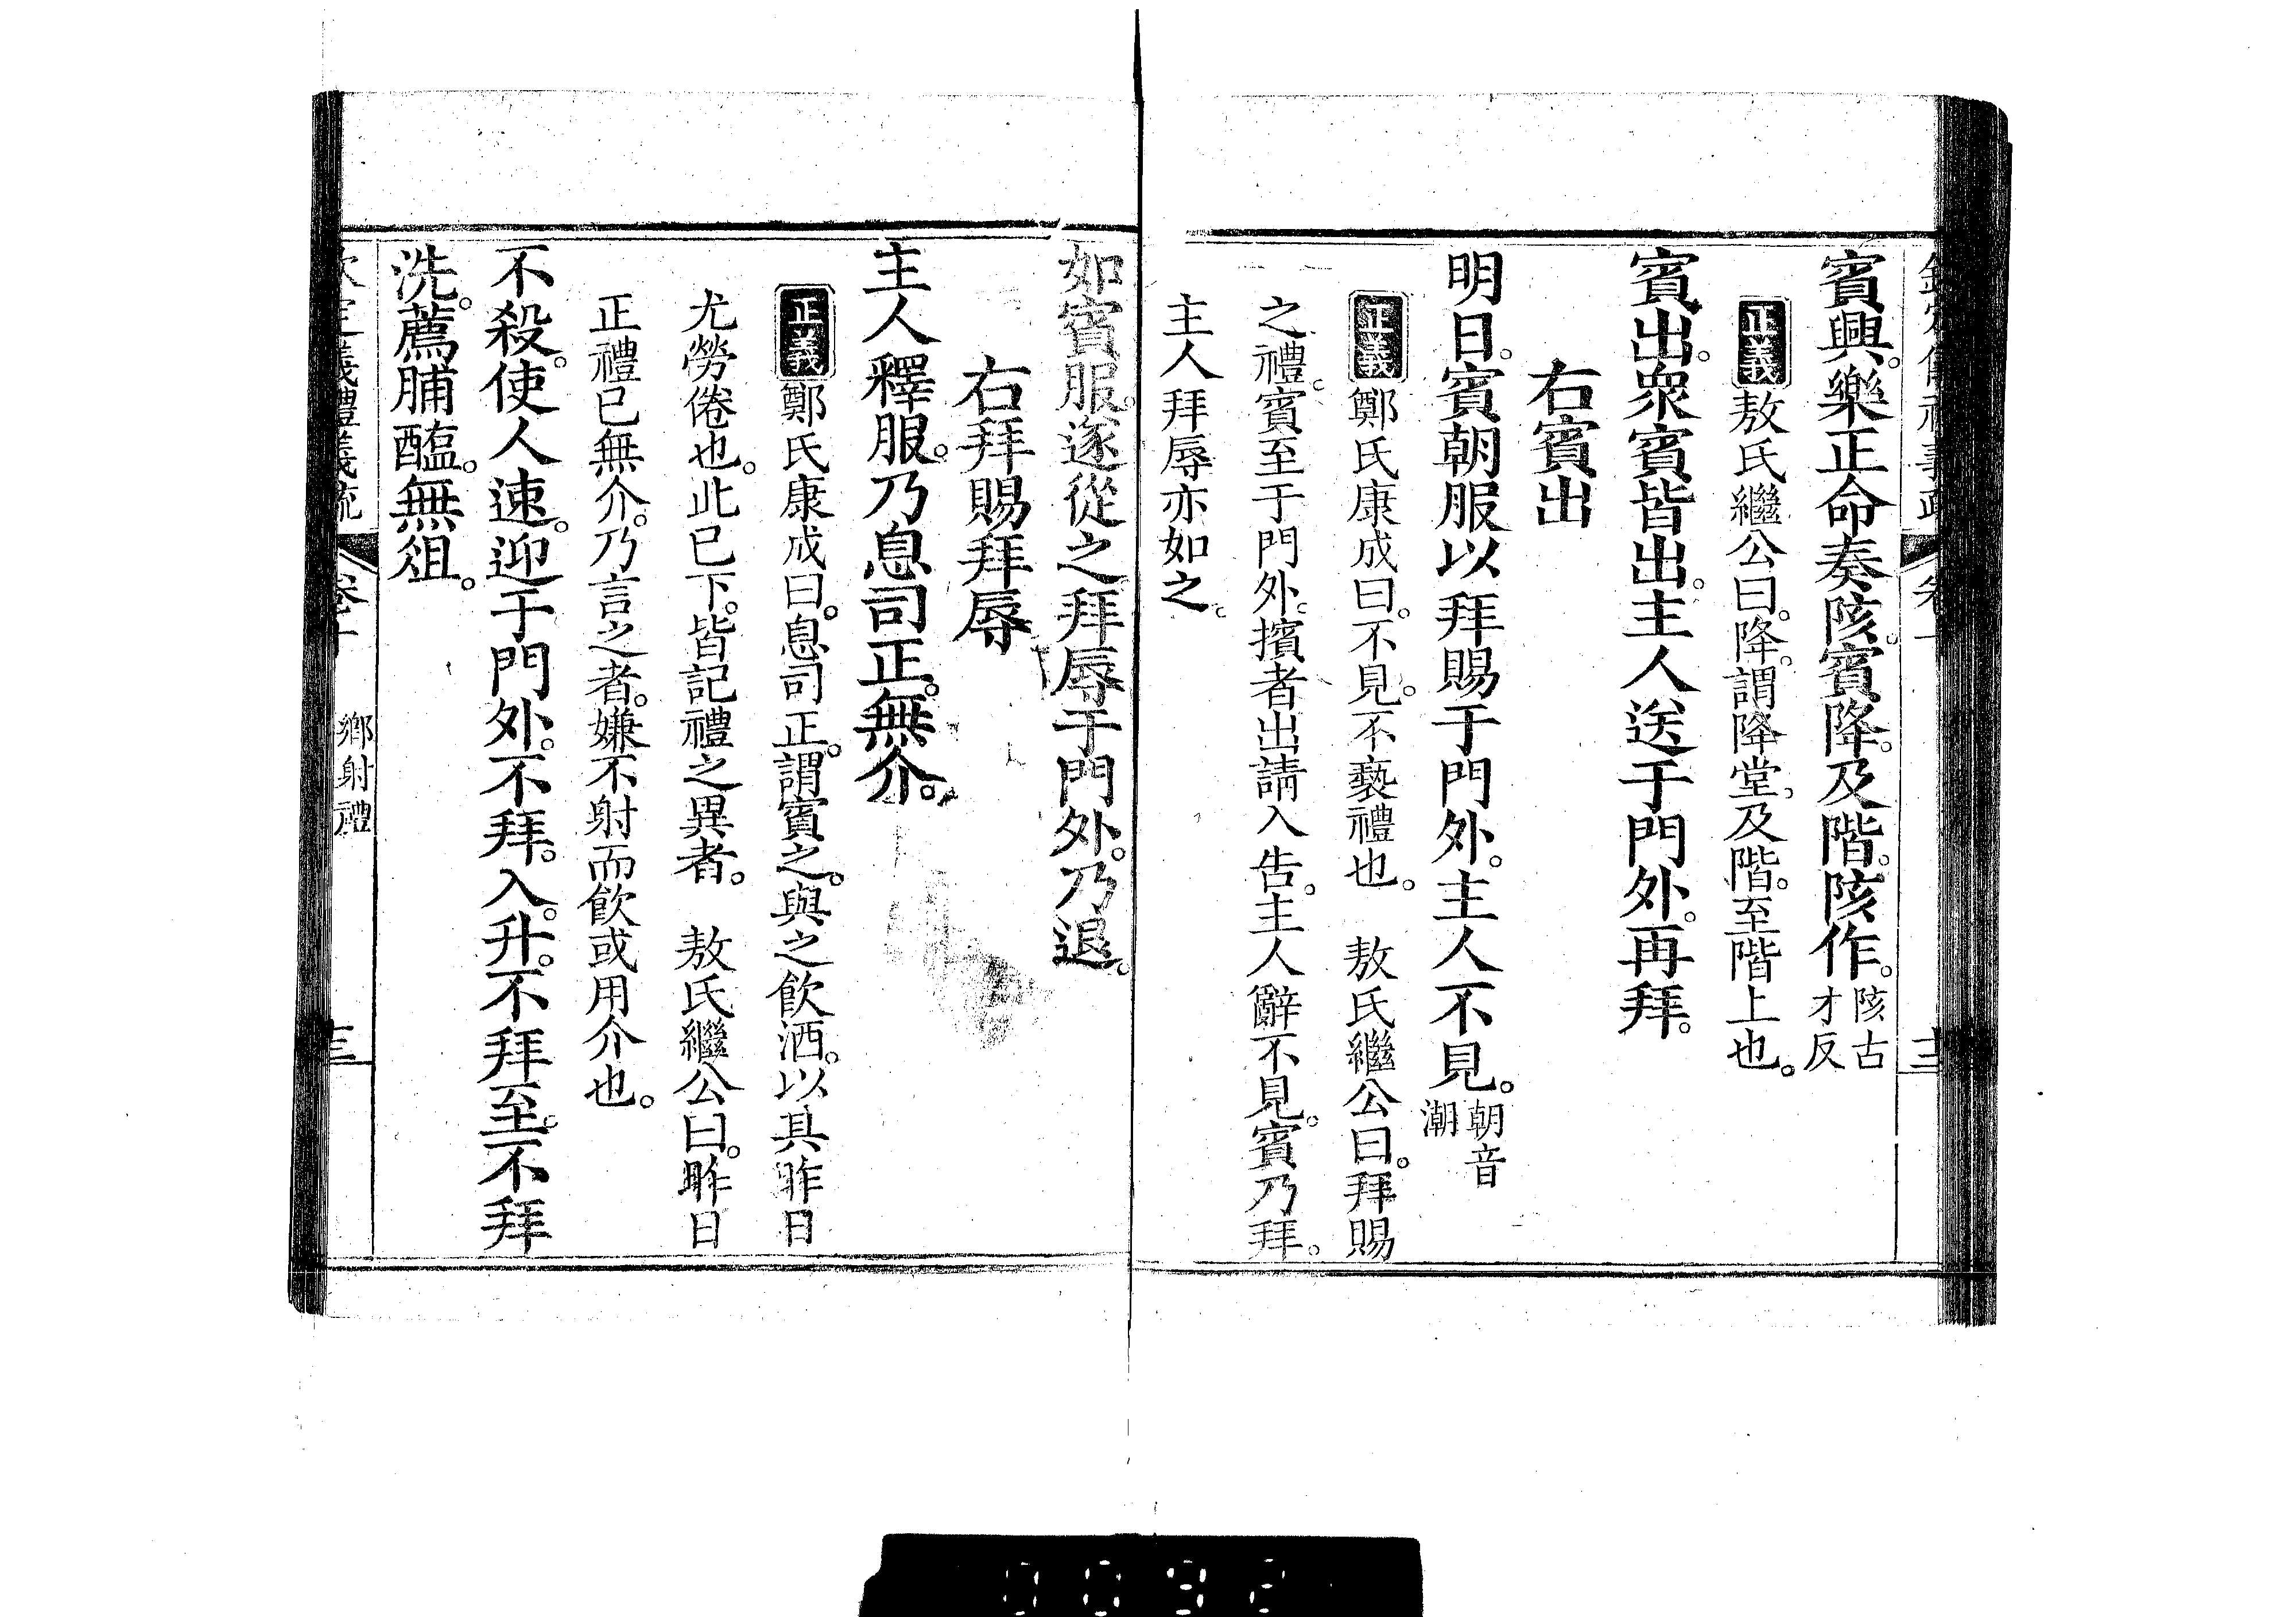 賓興。樂正命奏陔。賓降。及階。陔作。陔古才反
正義敖氏繼公曰。降。謂降堂。及階。至階上也。
賓出。衆賓皆出。主人送于門外。再拜。
右賓出
明日。賓朝服以拜賜于門外。主人不見。朝音潮
正義鄭氏康成曰。不見。不褻禮也。　敖氏繼公曰。拜賜
之禮。賓至于門外。擯者出請入告。主人辭不見。賓乃拜。
主人拜辱亦如之。
如賓服。遂從之拜辱于門外。乃退。
右拜賜拜辱
主人釋服。乃息司正。無介。
正義鄭氏康成曰。息司正。謂賓之。與之飲酒。以其昨日
尤勞倦也。此已下。皆記禮之異者。　敖氏繼公曰。昨日
正禮已無介。乃言之者。嫌不射而飲或用介也。
不殺。使人速。迎于門外。不拜。入。升。不拜至。不拜
洗。薦脯醢。無俎。
義禮義疏 卷十 鄉射禮